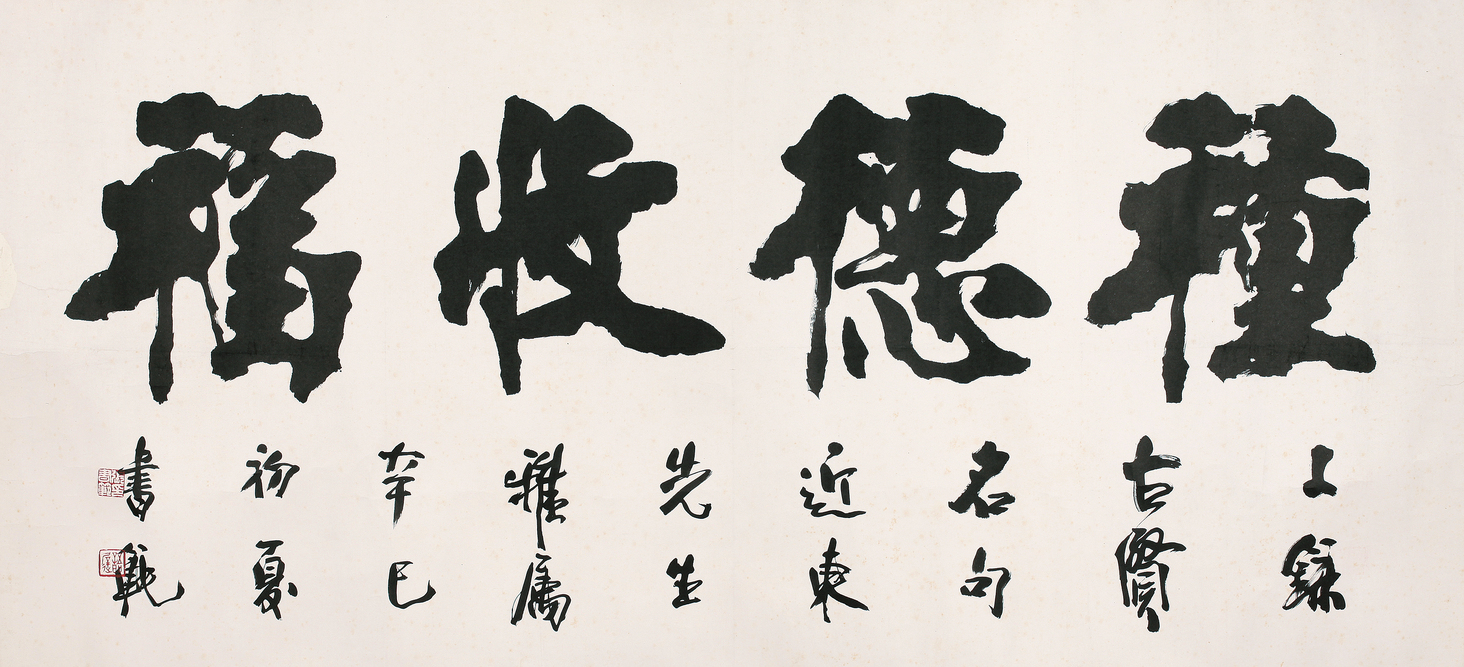 種德收福
上錄
古賢
名句
近東
先生
雅屬
辛巳
初夏
書範